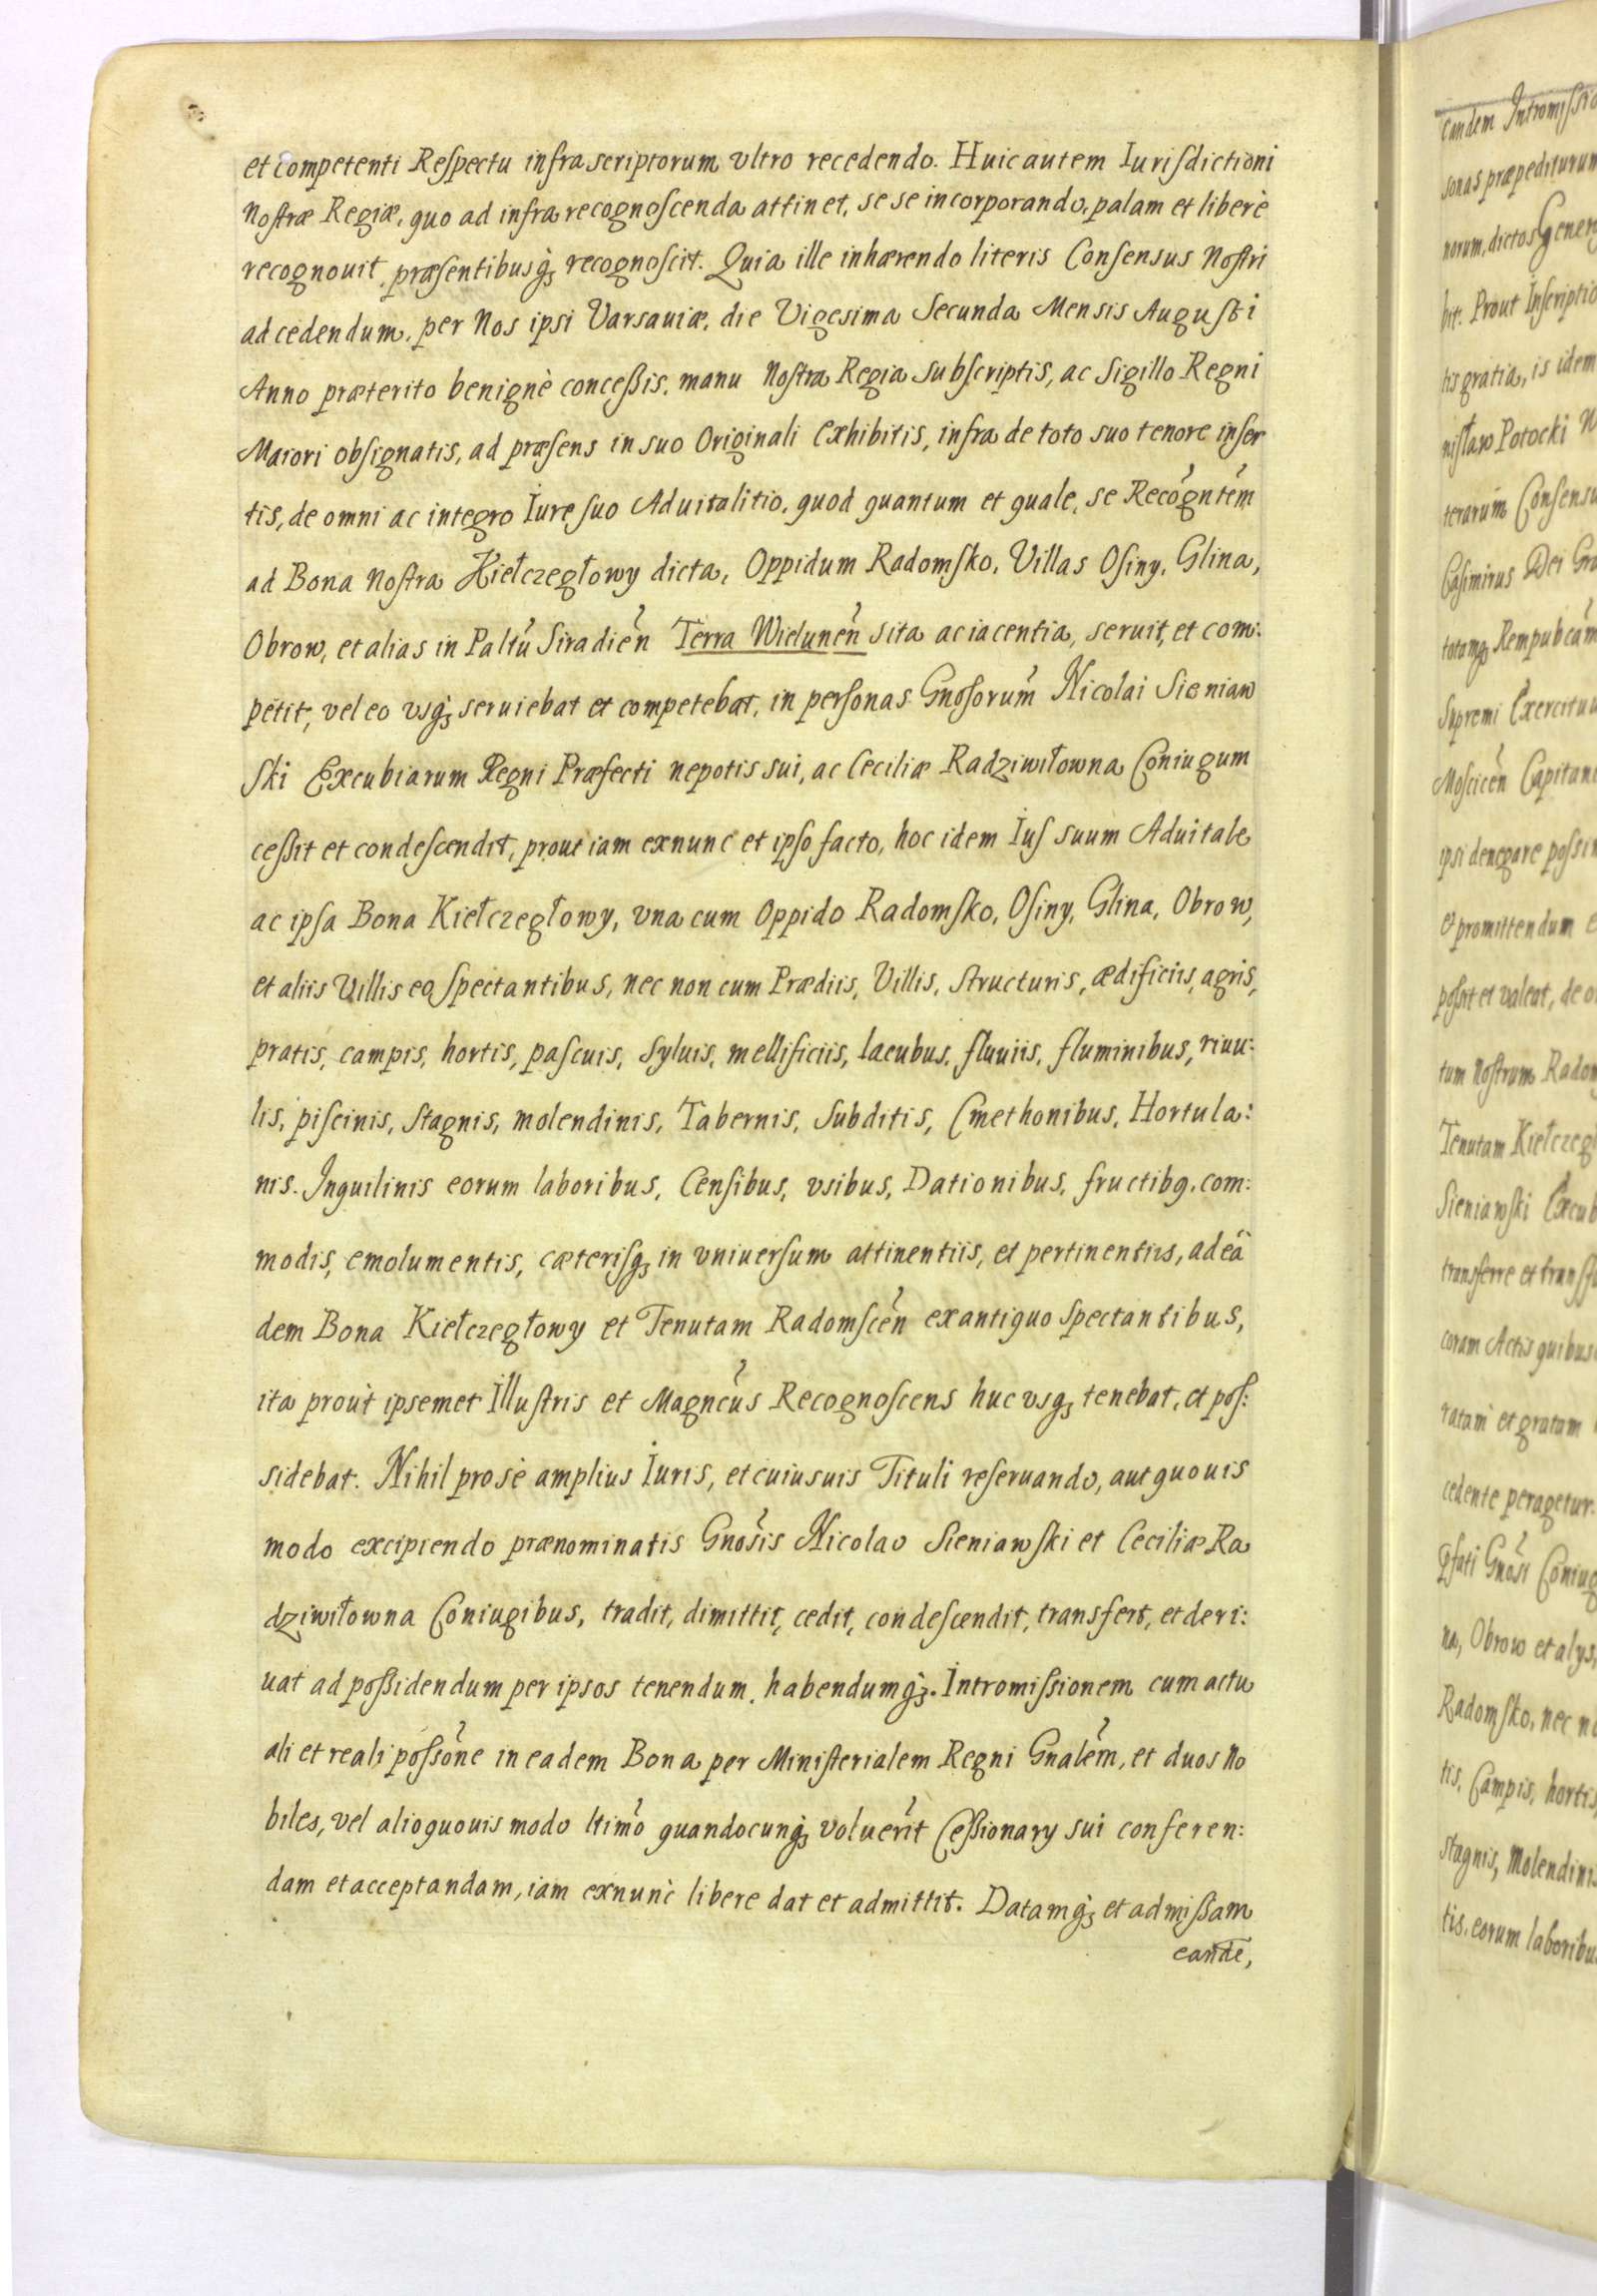 et competenti Reſpectu infra scriptorum vltro recedendo. Huic autem Iuriſdictioni
Noſtræ Regiæ, quo ad infra recognoſcenda attinet, se se incorporando, palam et liberè
recognouit, præſentibusq́ꝫ recognoſcit. Quia ille inhærendo literis Conſensus Noſtri
ad cedendum, per Nos ipsi Varsauiæ, die Vigesima Secunda Mensis Auguſti
Anno præterito benignè conceßis, manu Noſtra Regia subſcriptis, ac Sigillo Regni
Maiori obſignatis, ad præſens in suo Originali exhibitis, infra de toto suo tenore inſer
tis, de omni ac integro Iure ſuo Aduitalitio, quod quantum et quale, se Recogntem̃
ad Bona Noſtra Kiełczegłowy dicta, Oppidum Radomſko, Villas Oſiny, Glina,
Obrow, et alias in Paltũ Siradien̄ Terra Wielunen̄ sita ac iacentia, seruit, et com:
petit, vel eo vsq́ꝫ seruiebat et competebat, in perſonas Gnoſorum̃ Nicolai Sieniaw
ſki Excubiarum Regni Præfecti nepotis sui, ac Ceciliæ Radziwiłowna Coniugum
ceßit et condeſcendit, prout iam exnunc et ipſo facto, hoc idem Iuſ suum Aduitale
ac ipſa Bona Kiełczegłowy, vna cum Oppido Radomſko, Oſiny, Glina, Obrow,
et aliis Villis eo ſpectantibus, nec non cum Prædiis, Villis, ſtructuris, ædificiis, agris,
pratis, campis, hortis, paſcuis, Syluis, mellificiis, lacubus, fluuiis, fluminibus, riuu:
lis, piſcinis, Stagnis, molendinis, Tabernis, Subditis, Cmethonibus, Hortula:
nis. Inquilinis eorum laboribus, Cenſibus, vsibus, Dationibus, fructibꝯ, com:
modis, emolumentis, cæteriſqꝫ in vniuerſum attinentiis, et pertinentiis, ad eā
dem Bona Kiełczegłowy et Tenutam Radomſcen̄ ex antiquo ſpectantibus,
ita prout ipsemet Illuſtris et Magncũs Recognoſcens huc vsqꝫ tenebat, et poſ:
sidebat. Nihil pro sè amplius Iuris, et cuiusuis Tituli reſeruando, aut quouis
modo excipiendo prænominatis Gnosĩs Nicolao Sieniawſki et Ceciliæ Ra
dziwiłowna Coniugibus, tradit, dimittit, cedit, condeſcendit, transfert, et deri:
uat ad poßidendum per ipsos tenendum, habendumq́ꝫ. Intromiſsionem cum actu
ali et reali poſsõne in eadem Bona per Miniſterialem Regni Gnalem̃, et duos No
biles, vel alio quouis modo ltimõ quandocunq́ꝫ voluerĩt Ceßionary sui conferen:
dam et acceptandam, iam exnunc libere dat et admittit. Datamq́ꝫ et admiſsam
eandē,
candem Intromiſsio
sonas præpediturum
norum, dictos Gener
bit. Prout Inſcriptio
tis gratia, is idem
niſław Potocki W
terarum Conſensu
Caſimirus Dei Gra
totamqꝫ Rempubcam̃
Supremi Exercituu
Moſcicen̄ Capitane
ipsi denegare poſsim
et promittendum e
poſsit et valeat, de o
tum noſtrum Radom
Tenutam Kiełczegł
Sieniawſki Excub
transferre et tranſfu
coram Actis quibus
ratam et gratam
cedente peragetur.
Pſati Gnosĩ Coniug
na, Obrow et alys,
Radomſko, nec no
tis, Campis, hortis,
Stagnis, Molendinis
tis. eorum laboribus